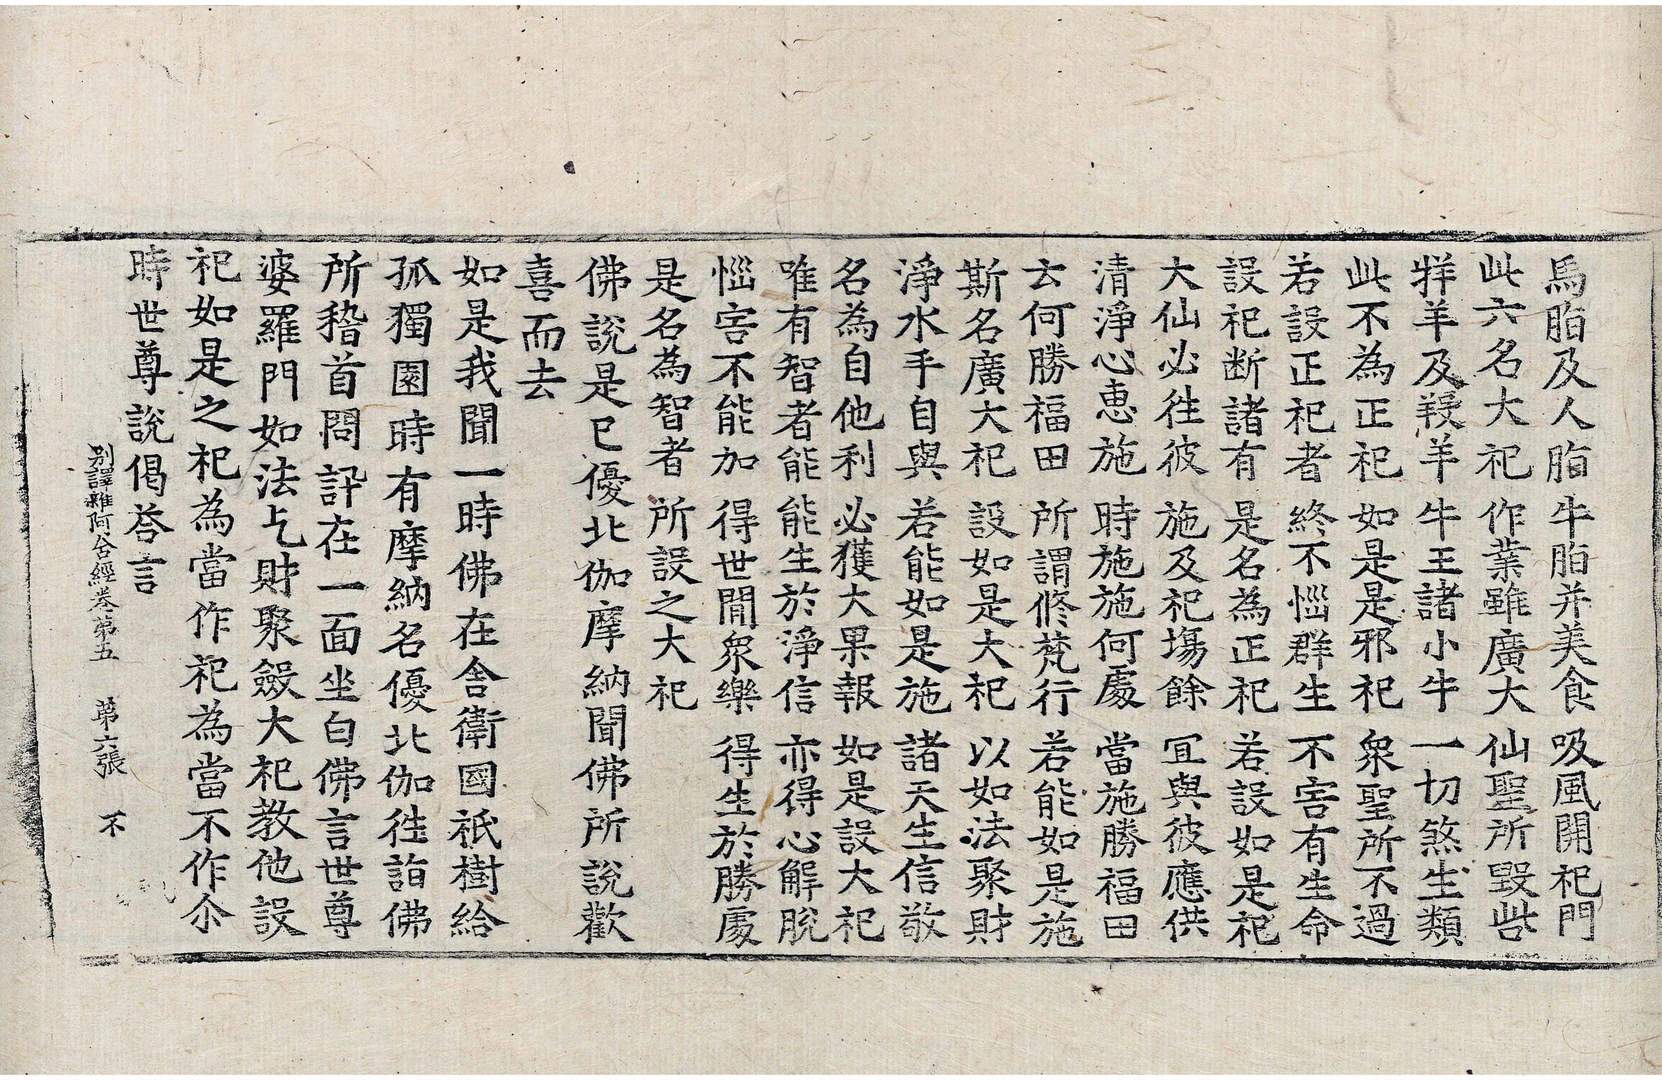 馬脂及人脂 牛脂并美食 吸風開祀門
此六名大祀 作業雖廣大 仙聖所毀呰
牂羊及羖羊 牛王諸小牛 一切煞生類
此不為正祀 如是是邪祀 衆聖所不過
若設正祀者 終不惱群生 不害有生命
設祀断諸有 是名為正祀 若設如是祀
大仙必往彼 施及祀塲餘 冝與彼應供
清淨心惠施 時施施何處 當施勝福田
云何勝福田 所謂修梵行 若能如是施
斯名廣大祀 設如是大祀 以如法聚財
淨水手自與 若能如是施 諸天生信敬
名為自他利 必獲大果報 如是設大祀
唯有智者能 能生於淨信 亦得心解脫
惱害不能加 得世間衆樂 得生於勝處
是名為智者 所設之大祀
佛說是已優北伽摩納聞佛所說歡
喜而去
如是我聞一時佛在舍衛國祇樹給
孤獨園時有摩納名優北伽往詣佛
所稽首問訊在一面坐白佛言世尊
婆羅門如法乞財聚斂大祀教他設
祀如是之祀為當作祀為當不作尒
時世尊說偈荅言
別譯雜阿含經卷第五 第六張 不